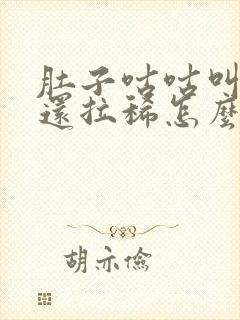 肚子咕咕叫
還拉稀怎麼
胡亦儉